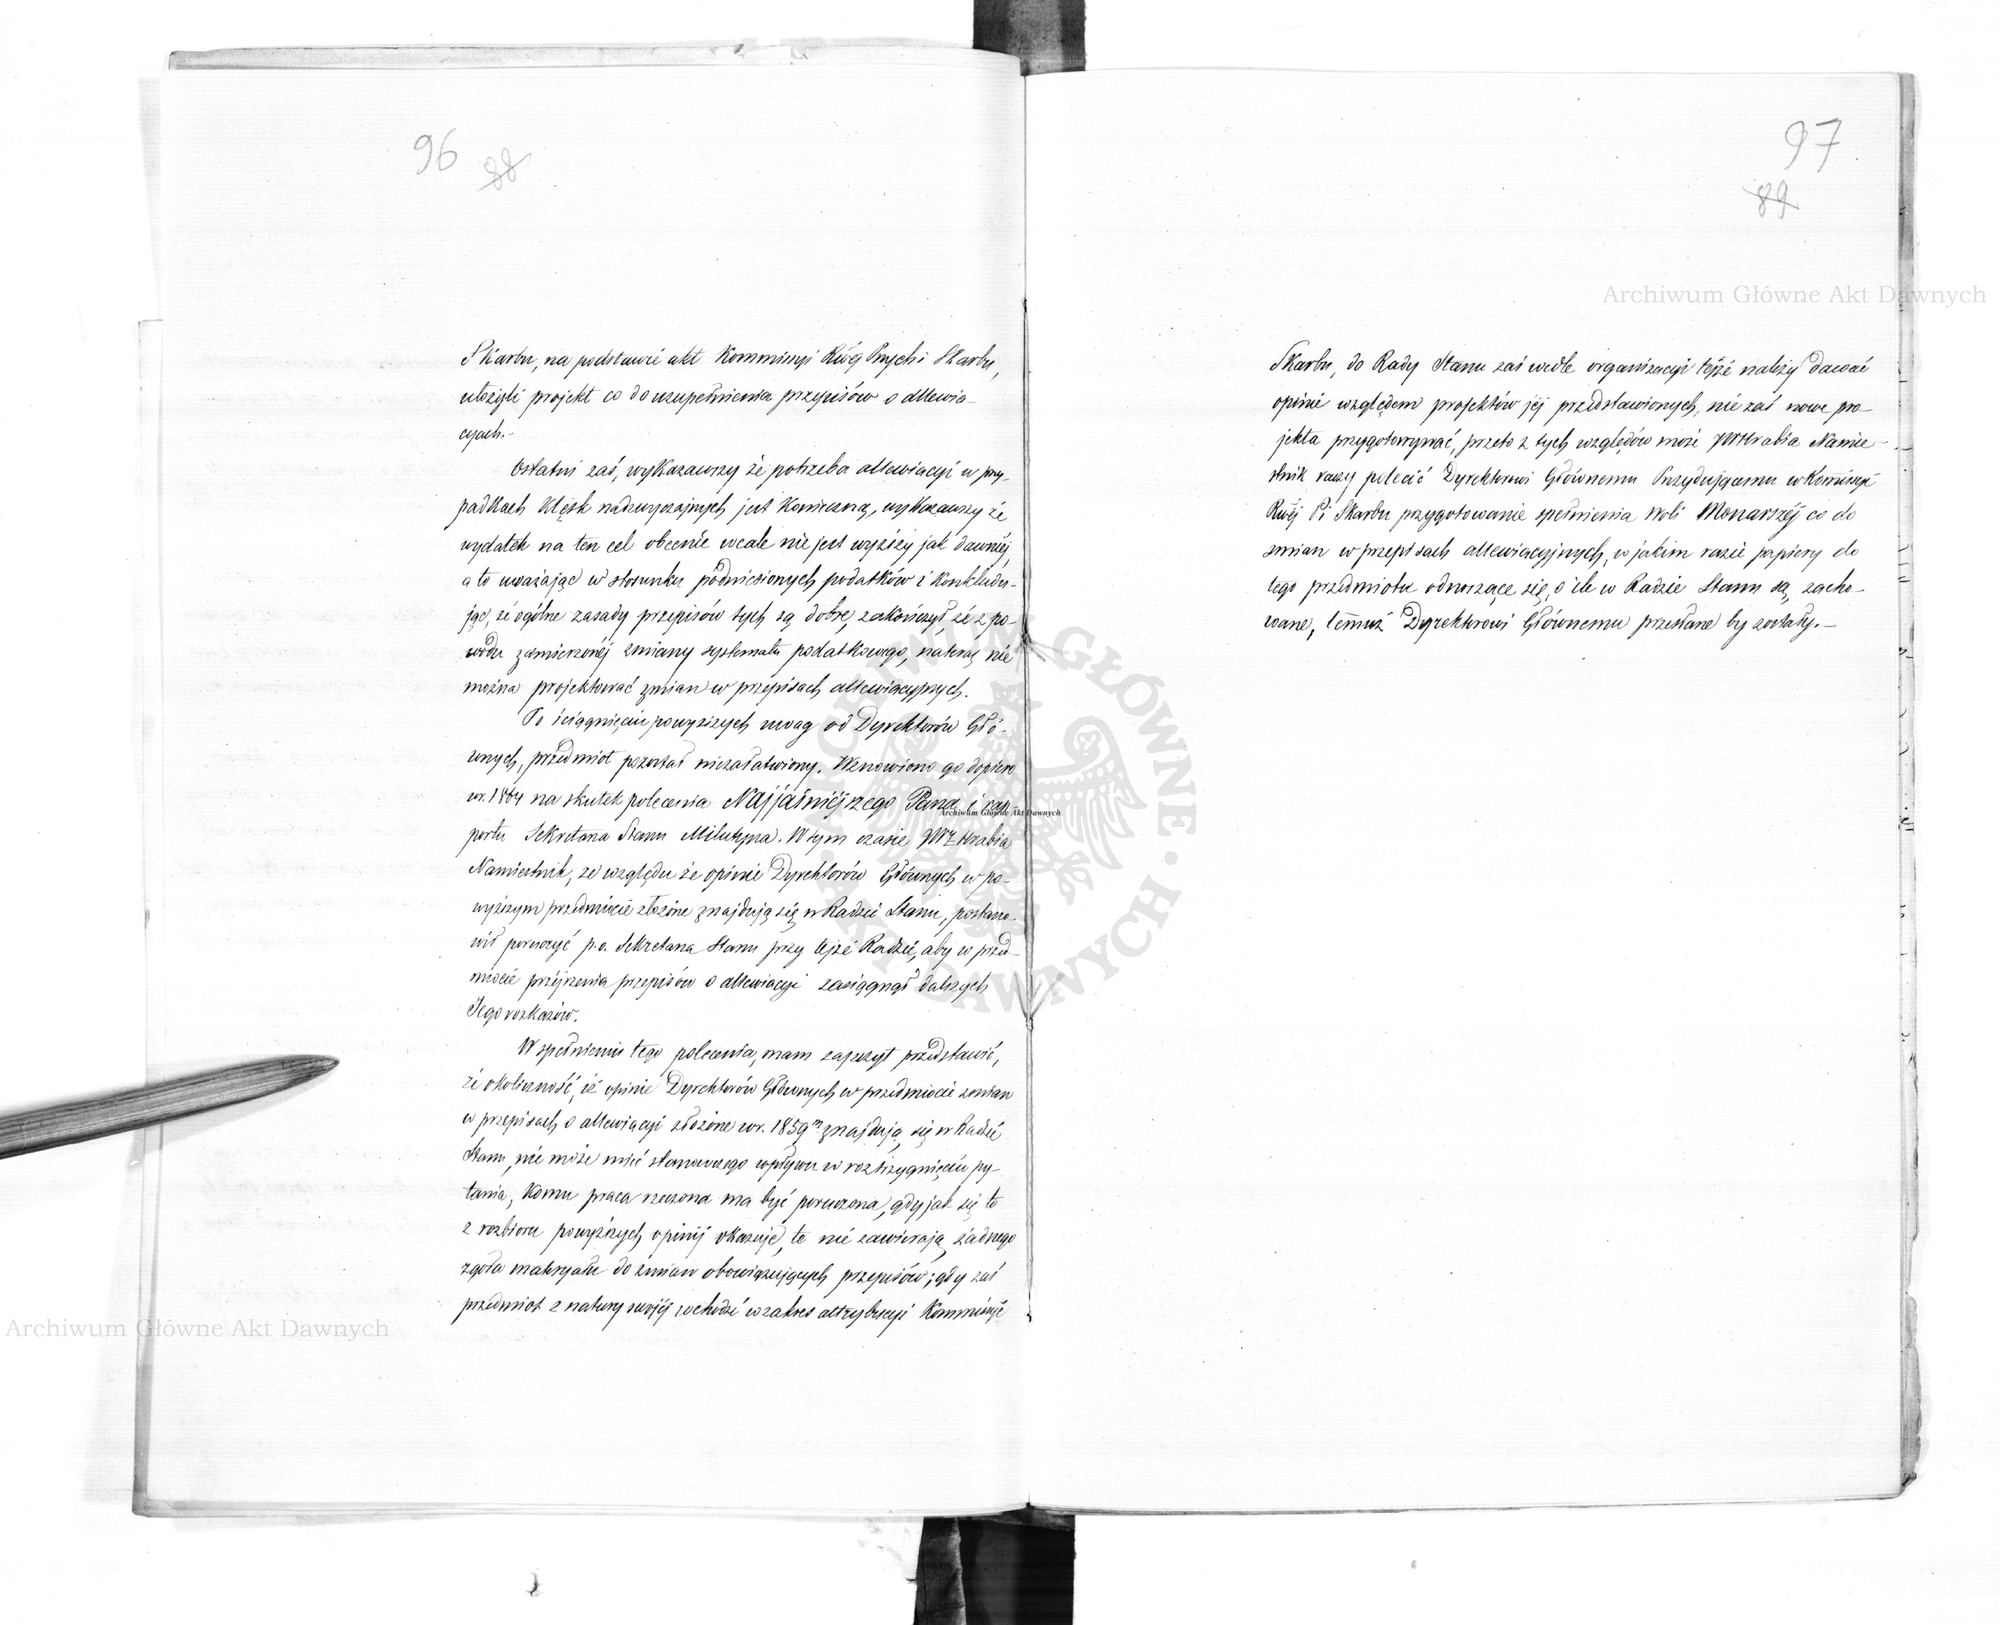 96 88
Skarbu, na podstawie akt Kommissyi Rzój Przych i Skarbu,
ułożyli projekt co do uzupełnienia przepisów o allewia-
cyach.-
Ostatni zaś, wykazawszy że potrzeba allewiacyi w przy-
padkach klęsk nadzwyczajnych jest konieczną, wykazawszy że
wydatek na ten cel obecnie wcale nie jest wyższy jak dawniej,
a to uważając w stosunku podniesionych podatków i konkludu-
jąc, że ogólne zasady przepisów tych są dobre, zakończył, że z po-
wodu zamierzonéj zmiany systematu podatkowego, nateraz nie
można projektować zmian w przepisach allewiacyjnych.
Po ściągnięciu powyższych uwag od Dyrektorów Głó-
wnych, przedmiot pozostał niezałatwiony. Wznowiono go dopiero
w r. 1864 na skutek polecenia Najjaśniéjszego Pana i rap-
portu Sekretarza Stanu Milutyna. W tym czasie JW Hrabia
Namiestnik, ze względu że opinie Dyrektorów Głównych w po-
wyższym przedmiocie złożone znajdują się w Radzie Stanu, postano-
wił poruczyć p.o. Sekretarza Stanu przy tejże Radzie, aby w przed-
miocie przejrzenia przepisów o allewiacyi zasiągnął dalszych
Jego rozkazów.
W spełnieniu tego polecenia, mam zaszczyt przedstawić,
że okoliczność, iż opinie Dyrektorów Głównych w przedmiocie zmian
w przepisach o allewiacyi złożone w r. 1859 znajdują się w Radzie
Stanu, nie może mieć stanowczego wpływu w rozstrzygnięciu py-
tania, komu praca rzeczona ma być poruczona, gdy jak się to
z rozbioru powyższych opinij okazuje, te nie zawierają żadnego
zgoła materyału do zmian obowiązujących przepisów; gdy zaś
przedmiot z natury swojéj wchodzi w zakres attrybucyi Kommissyi
97
89
Skarbu, do Rady Stanu zaś wedle organizacyi téjże należy dawać
opinie względem projektów jéj przedstawionych, nie zaś nowe pro-
jekta przygotowywać, przeto z tych względów może JW Hrabia Namie-
stnik raczy polecić Dyrektorowi Głównemu Prezydującemu w Kommissyi
Rzój P i Skarbu przygotowanie spełnienia Woli Monarszéj co do
zmian w przepisach allewiacyjnych, w jakim razie papiery do
tego przedmiotu odnoszące się, o ile w Radzie Stanu są zacho-
wane, temuż Dyrektorowi Głównemu przesłane by zostały.-
Archiwum Główne Akt Dawnych
Archiwum Główne Akt Dawnych
Archiwum Główne Akt Dawnych
ARCHIWUM GŁÓWNE AKT DAWNYCH